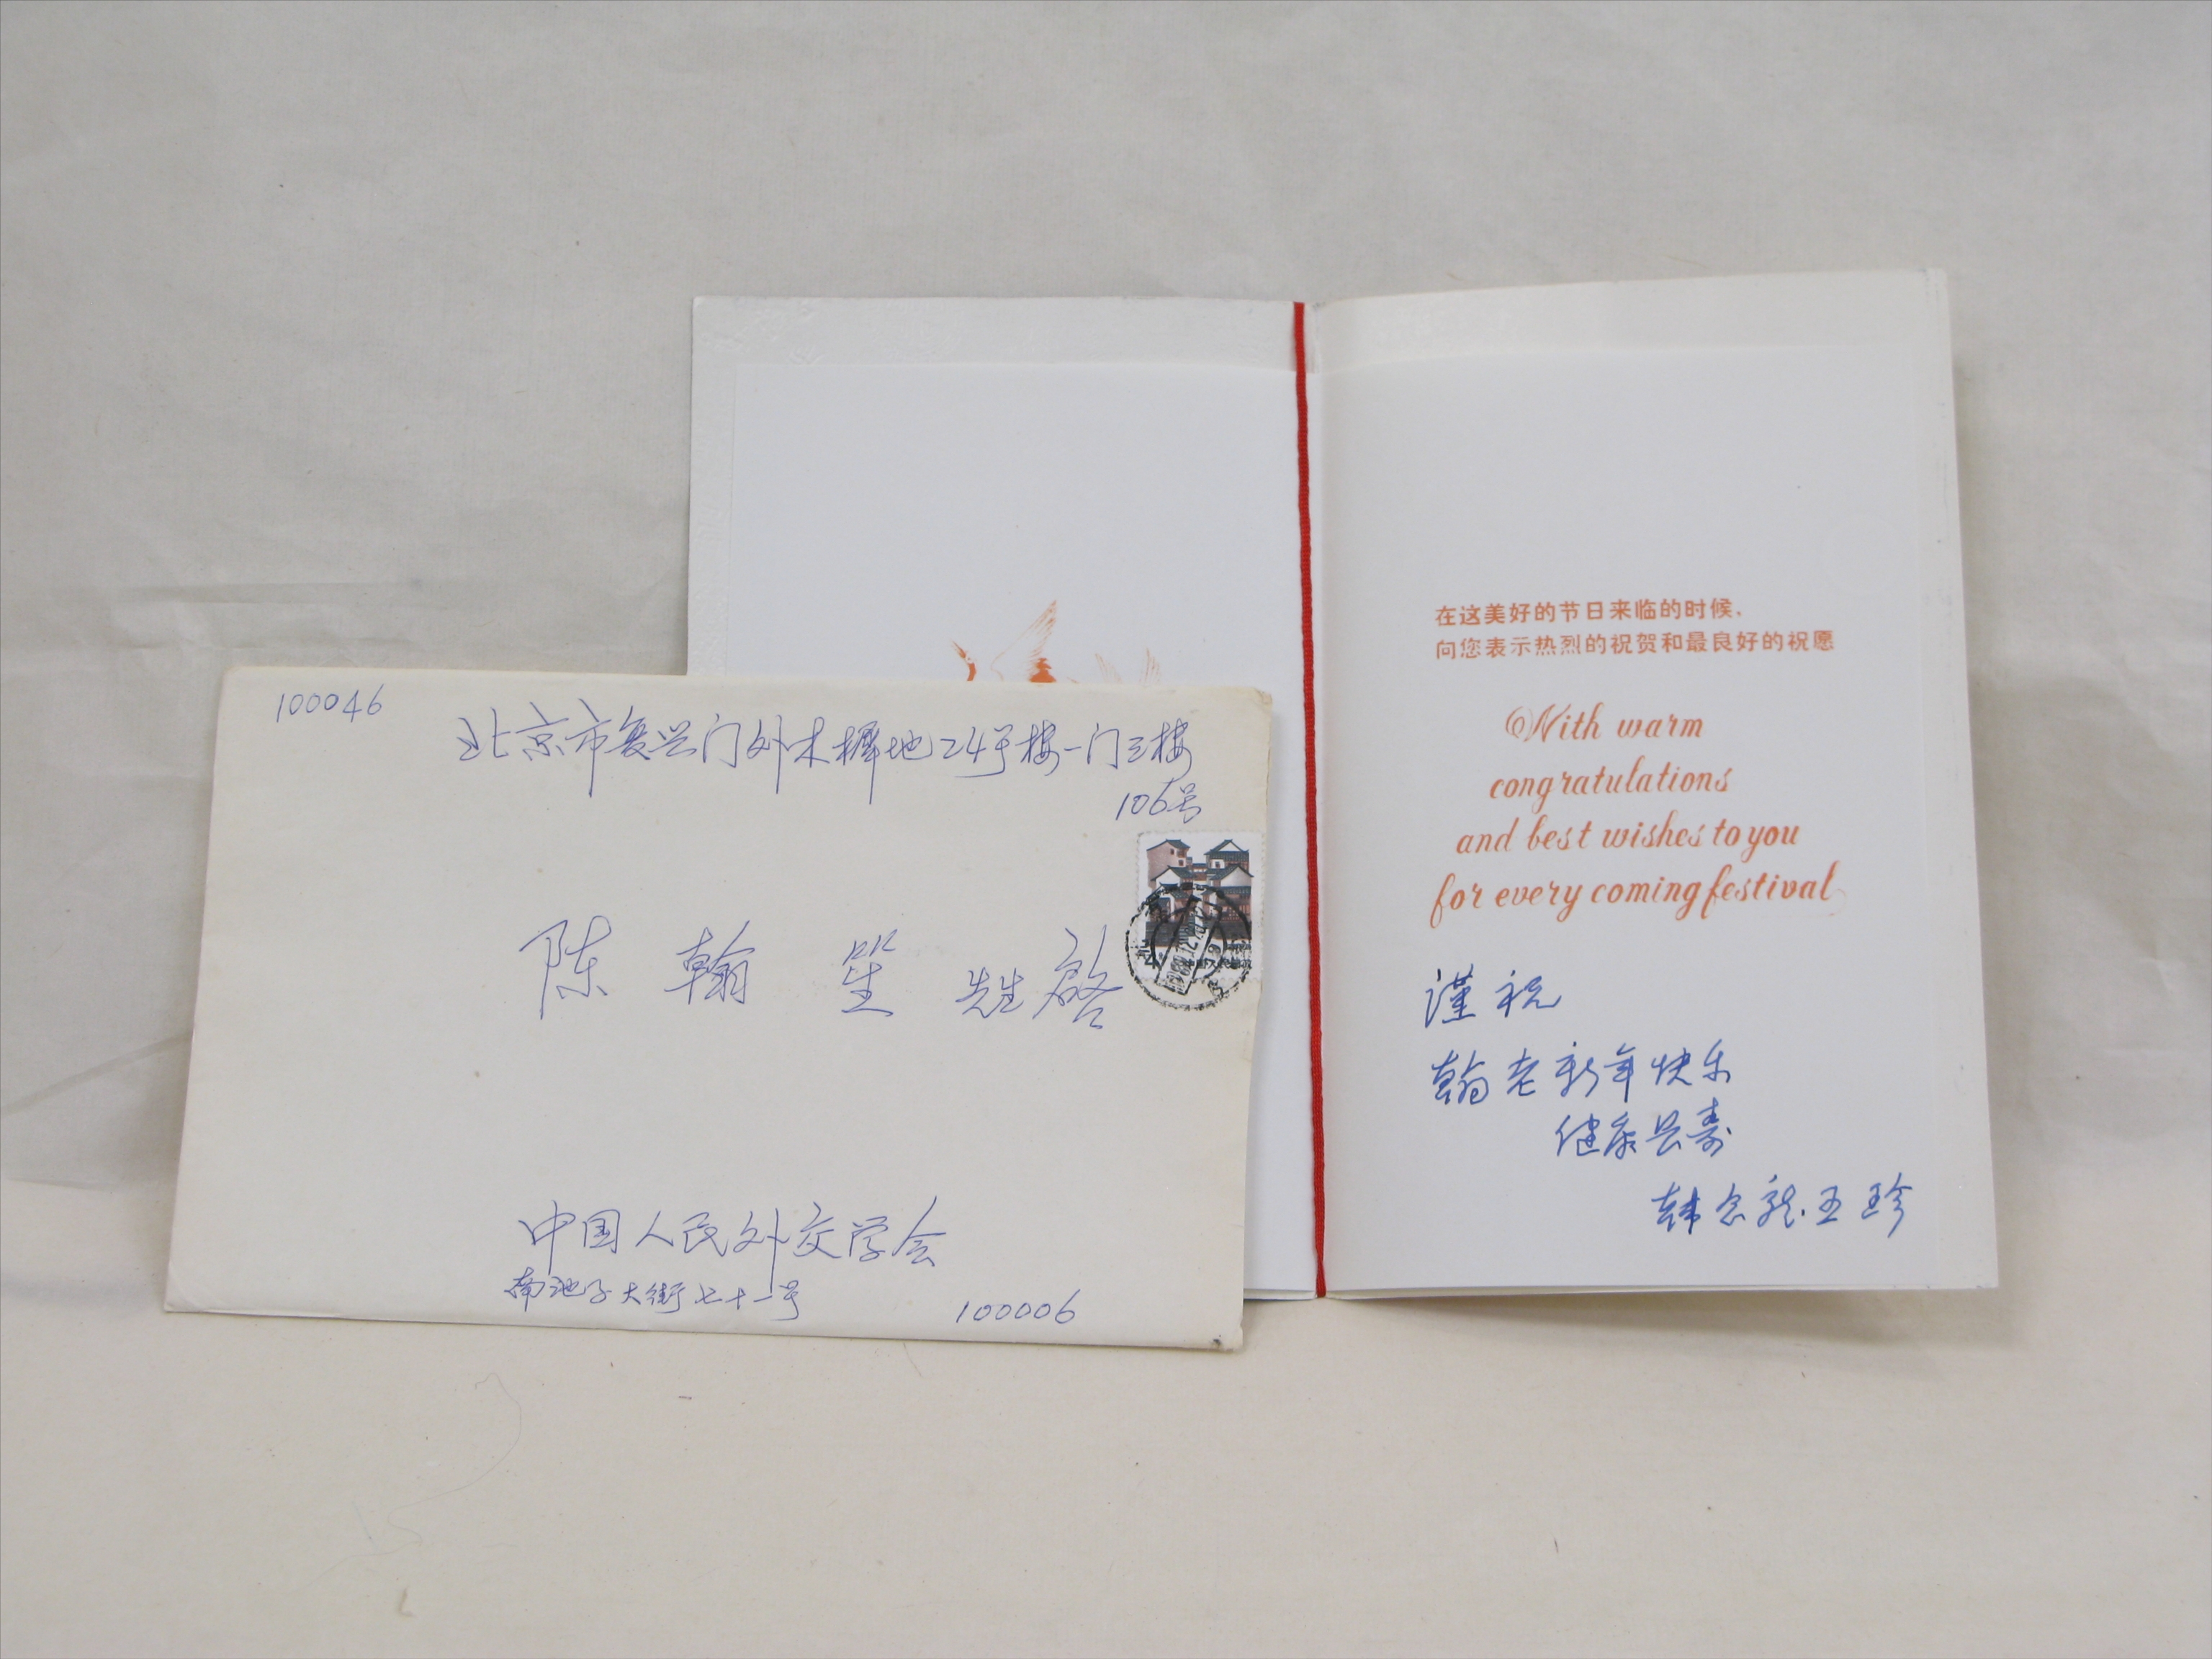 100046
北京市复兴门外木樨地24号楼一门三楼
106号
陈翰笙先生启
中国人民外交学会
南池子大街七十一号
100006
在这美好的节日来临的时候,
向您表示热烈的祝贺和最良好的祝愿
With warm
congratulations
and best wishes to you
for every coming festival
谨祝
翰老新年快乐
健康长寿
韩念龙 王珍